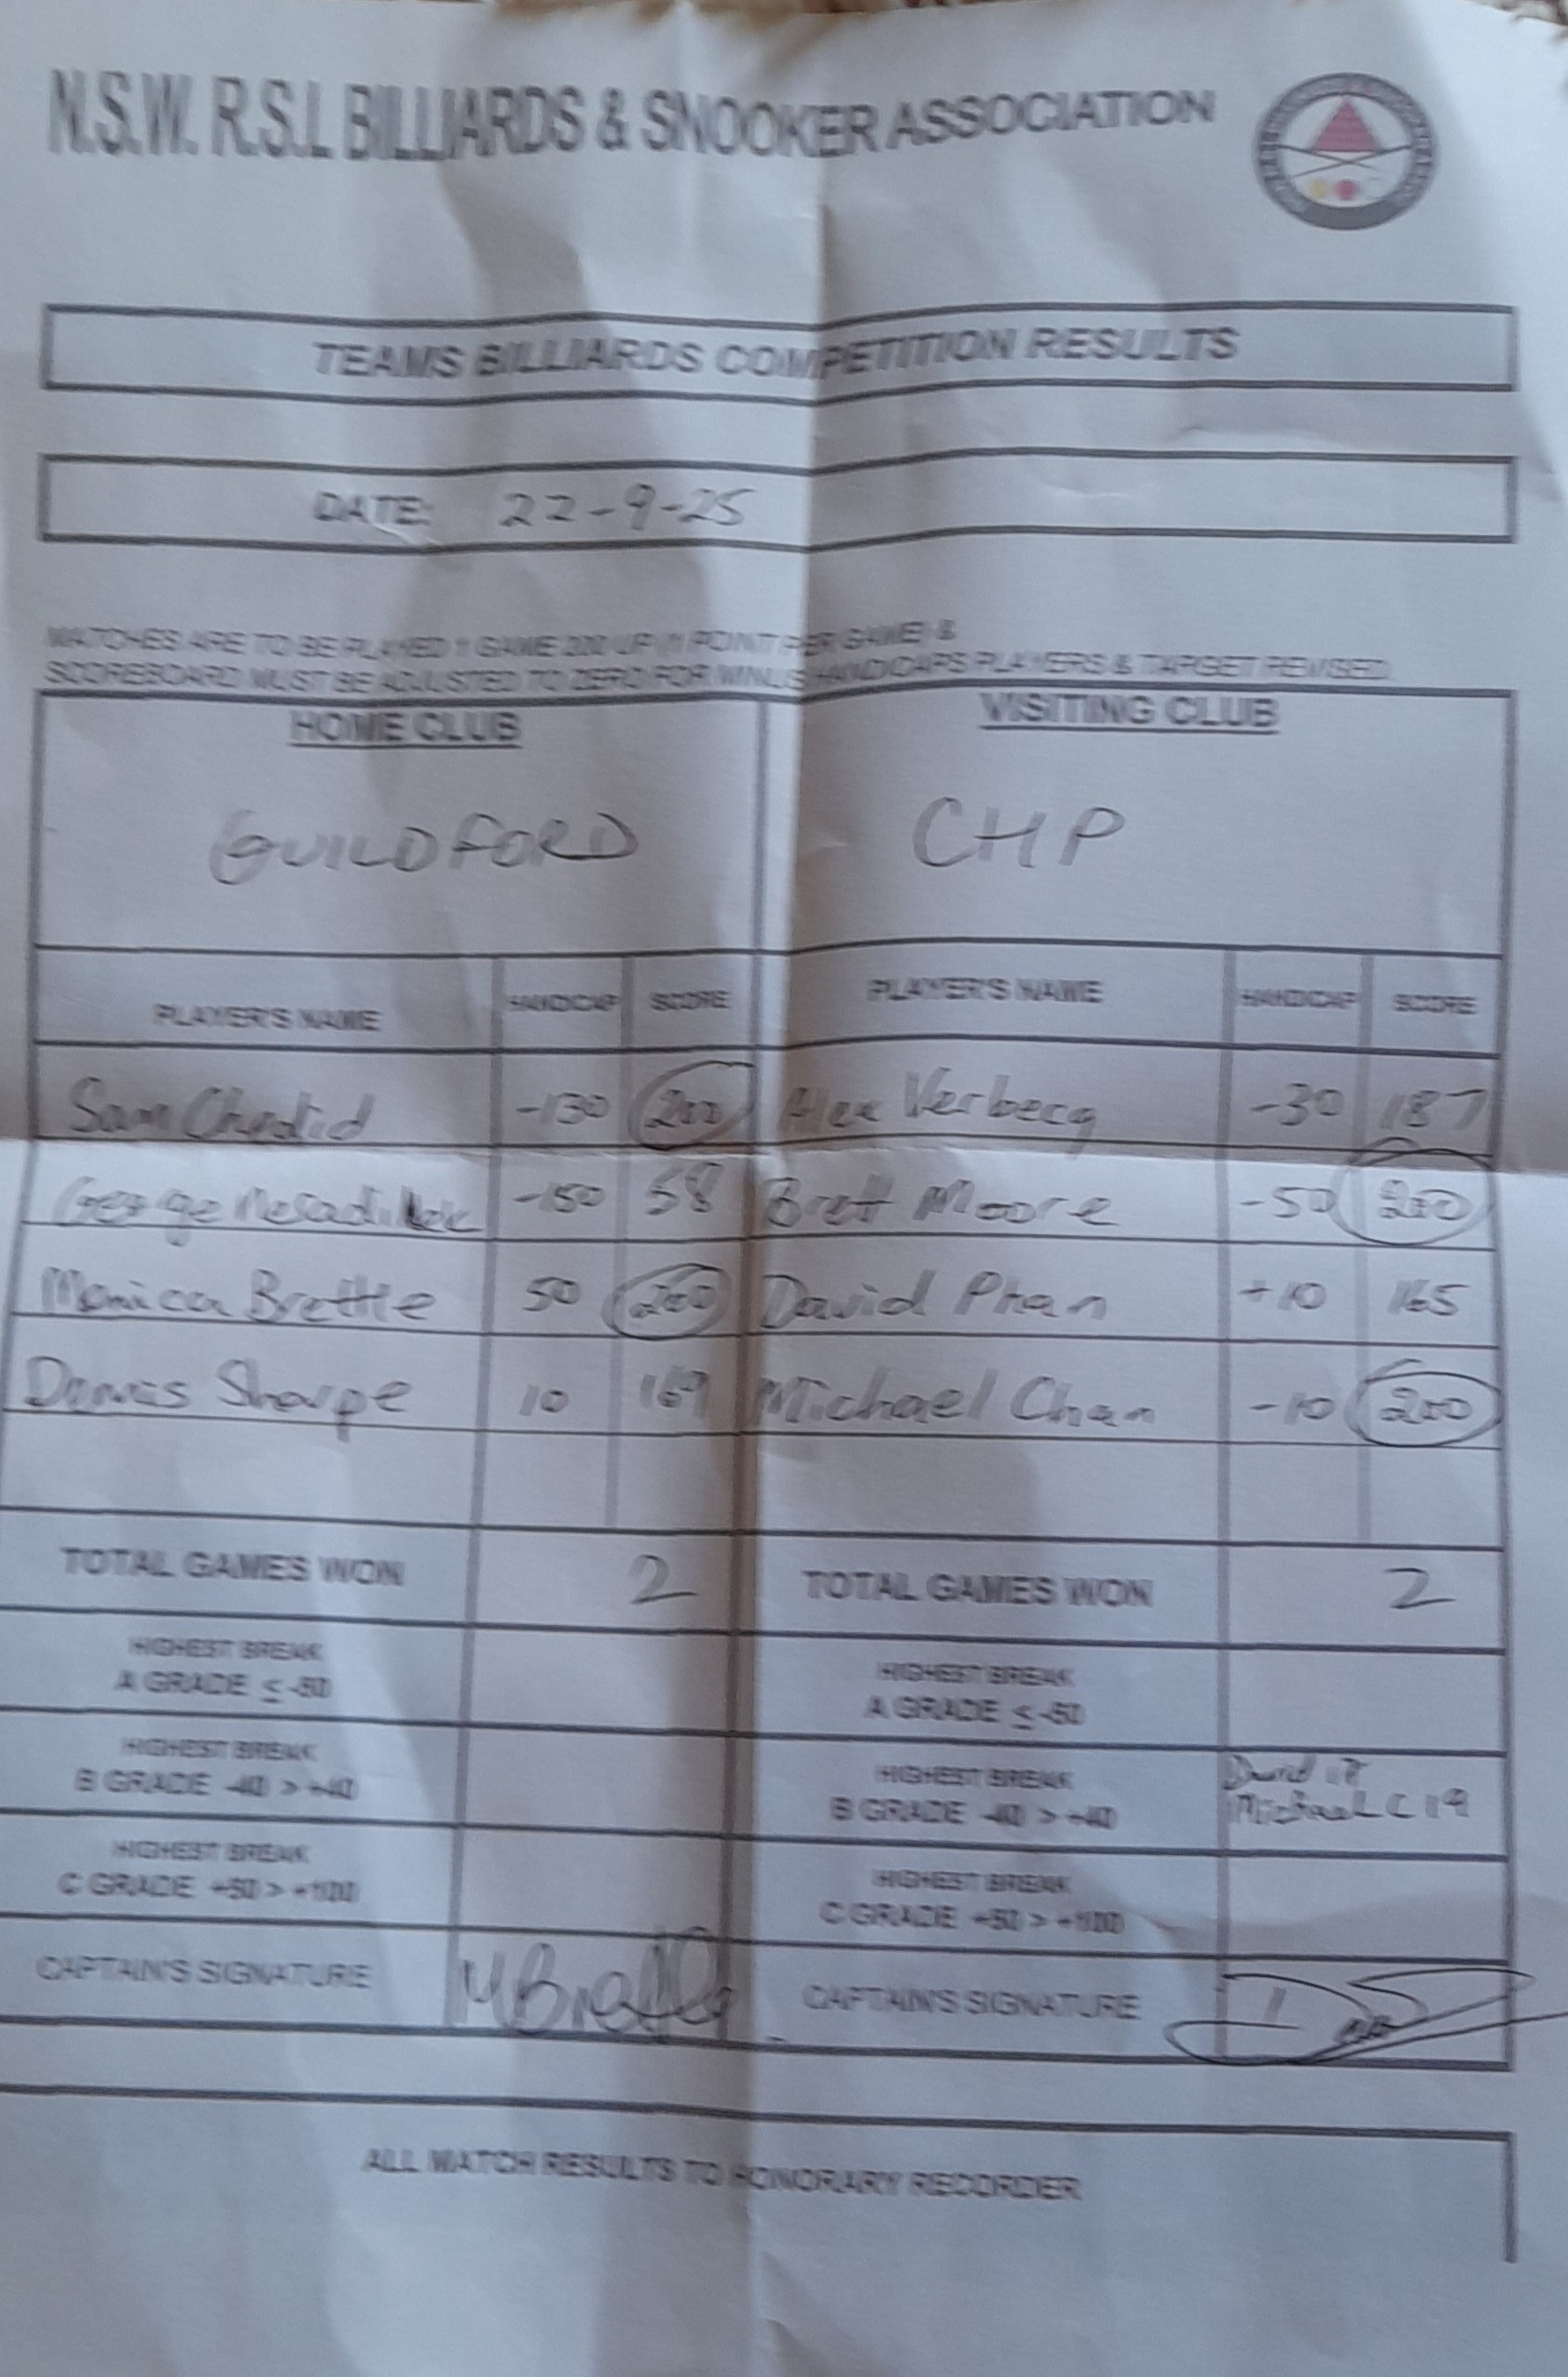 N.S.W. R.S.L BILLIARDS & SNOOKER ASSOCIATION
TEAMS BILLIARDS COMPETITION RESULTS
DATE: 22-9-25
MATCHES ARE TO BE PLAYED 1 GAME 200 UP (1 POINT PER GAME) &
SCOREBOARD MUST BE ADJUSTED TO ZERO FOR MINUS HANDICAPS PLAYERS & TARGET REVISED.
HOME CLUB VISITING CLUB
GUILDFORD CHP
PLAYER'S NAME HANDICAP SCORE PLAYER'S NAME HANDICAP SCORE
Sam Chedid -130 200 Alex Verbecq -30 187
George -150 58 Brett Moore -50 200
Monica Brettle 50 200 David Phan +10 165
Dennis Sharpe 10 169 Michael Chan -10 200
TOTAL GAMES WON 2 TOTAL GAMES WON 2
HIGHEST BREAK HIGHEST BREAK
A GRADE ≤ -50 A GRADE ≤ -50
HIGHEST BREAK HIGHEST BREAK David 17
B GRADE -40 > +40 B GRADE -40 > +40 Michael C 19
HIGHEST BREAK HIGHEST BREAK
C GRADE +50 > +100 C GRADE +50 > +100
CAPTAIN'S SIGNATURE M Brettle CAPTAIN'S SIGNATURE
ALL MATCH RESULTS TO HONORARY RECORDER